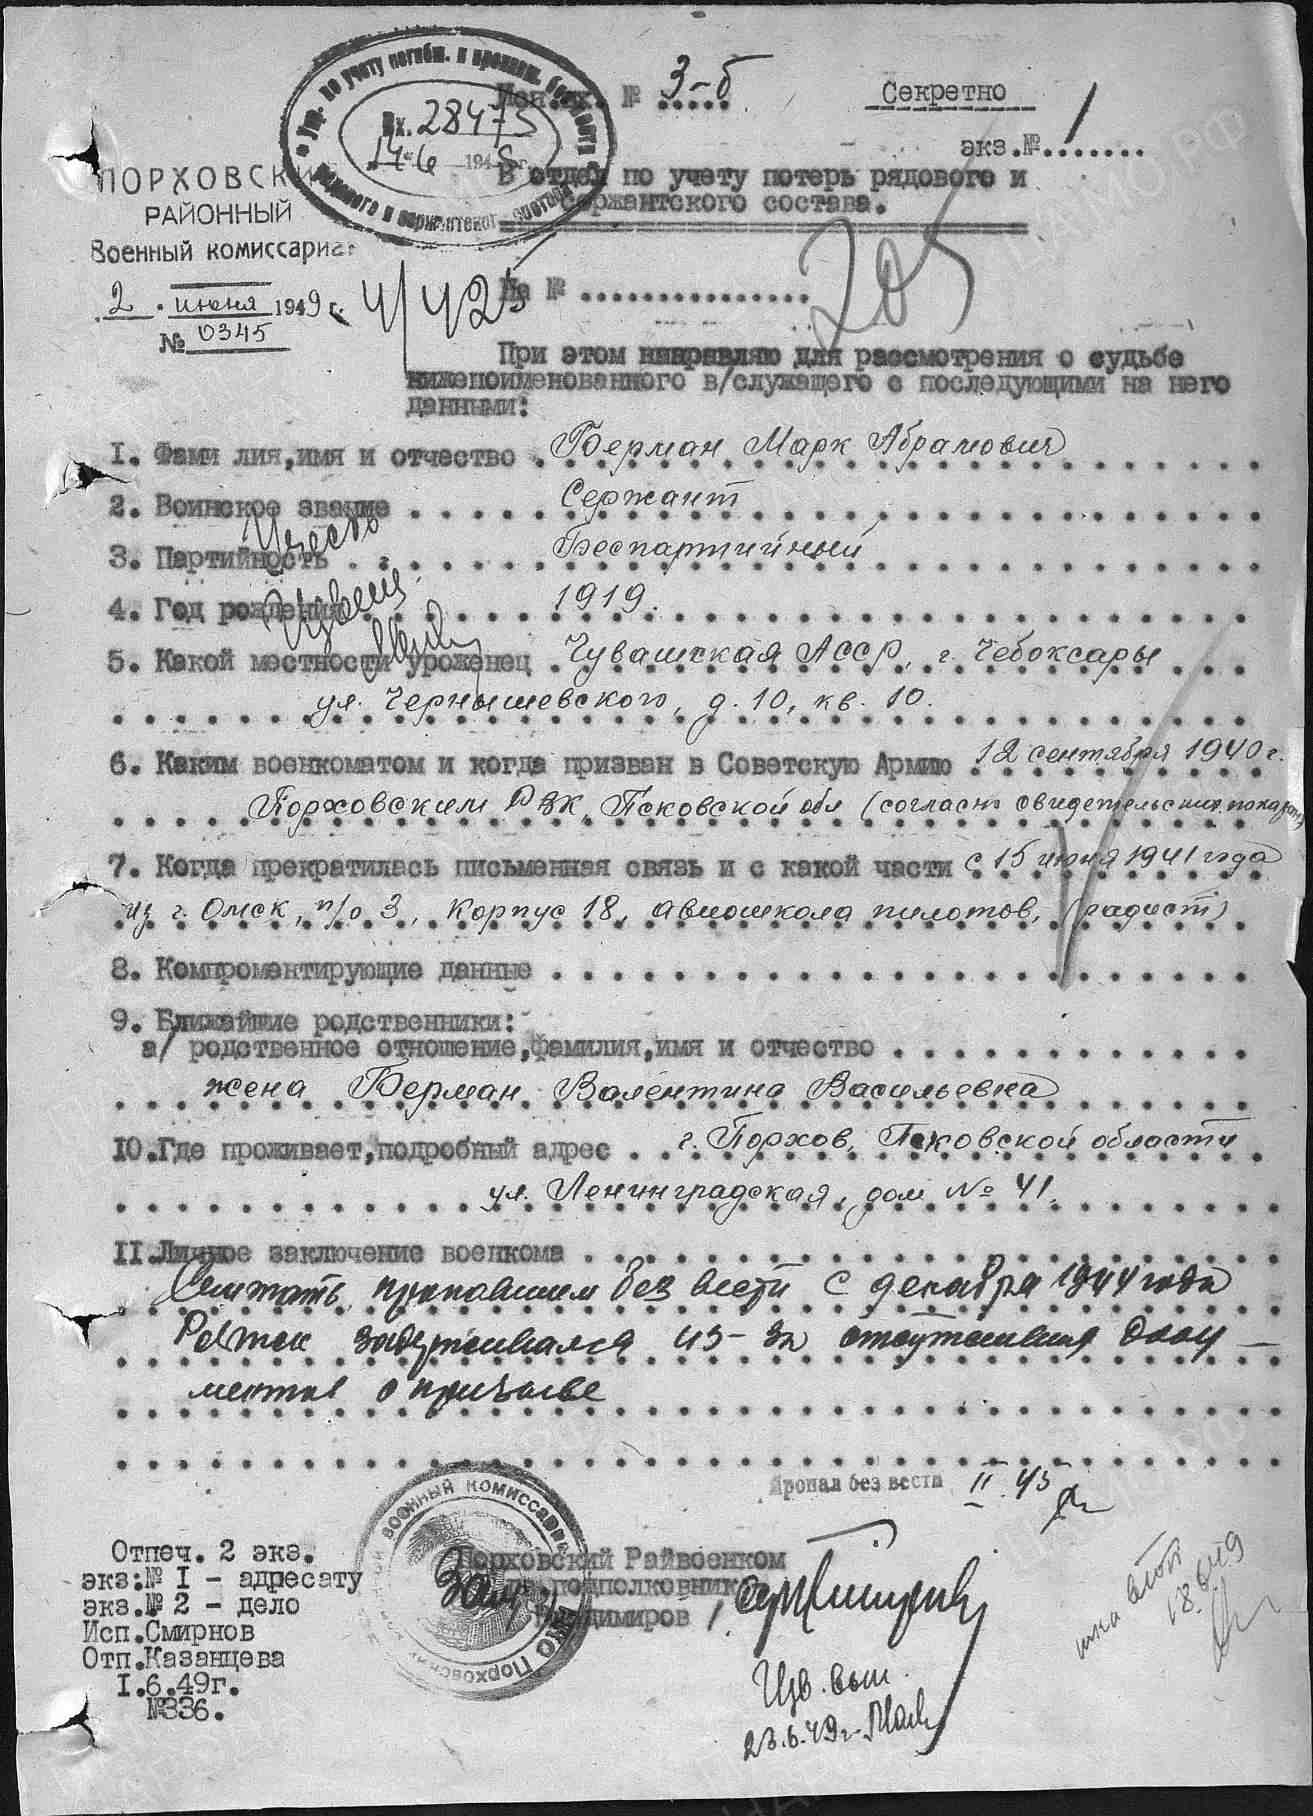 Упр. по учету погибш. и пропавш. без вести
рядового и сержантског. состава
Вх. 28475
14 6 194 г.
Исп. вх. № 3-б
Секретно
экз.№ 1
ПОРХОВСКИЙ
РАЙОННЫЙ
Военный комиссариат
2 . июня 1949 г.
№ 0345
В отдел по учету потерь рядового и
сержантского состава.
205
4/425
На № ...............
При этом направляю для рассмотрения о судьбе
нижепоименованного в/служащего с последующими на него
данными:
1. Фами лия,имя и отчество . Берман Марк Абрамович
2. Воинское звание . . . Сержант
3. Партийность . . . Беспартийный
4. Год рождения . . . 1919.
5. Какой местности уроженец . Чувашская АССР, г. Чебоксары
ул. Чернышевского, д. 10, кв. 10.
6. Каким военкоматом и когда призван в Советскую Армию . 12 сентября 1940 г.
Порховским РВК, Псковской обл (согласно свидетельских показаний)
7. Когда прекратилась письменная связь и с какой части с 15 июня 1941 года
из г. Омск, п/о 3, Корпус 18, авиошкола пилотов, (радист)
8. Компроментирующие данные . . .
9. Ближайшие родственники:
а/ родственное отношение,фамилия,имя и отчество . . .
жена Берман Валентина Васильевна
10.Где проживает,подробный адрес . . г. Порхов, Псковской области
ул. Ленинградская, дом № 41.
11.Личное заключение военкома . . .
Считать пропавшим без вести с декабря 1944 года
Розыск задерживался из-за отсутствия доку-
ментов о призыве
Пропал без вести II.45
Отпеч. 2 экз.
экз:№ 1 - адресату
экз.№ 2 - дело
Исп.Смирнов
Отп.Казанцева
1.6.49г.
№336.
Порховский Райвоенком
гв.подполковник
Зам /Владимиров /
Изв. выс.
23.6.49г.
18.